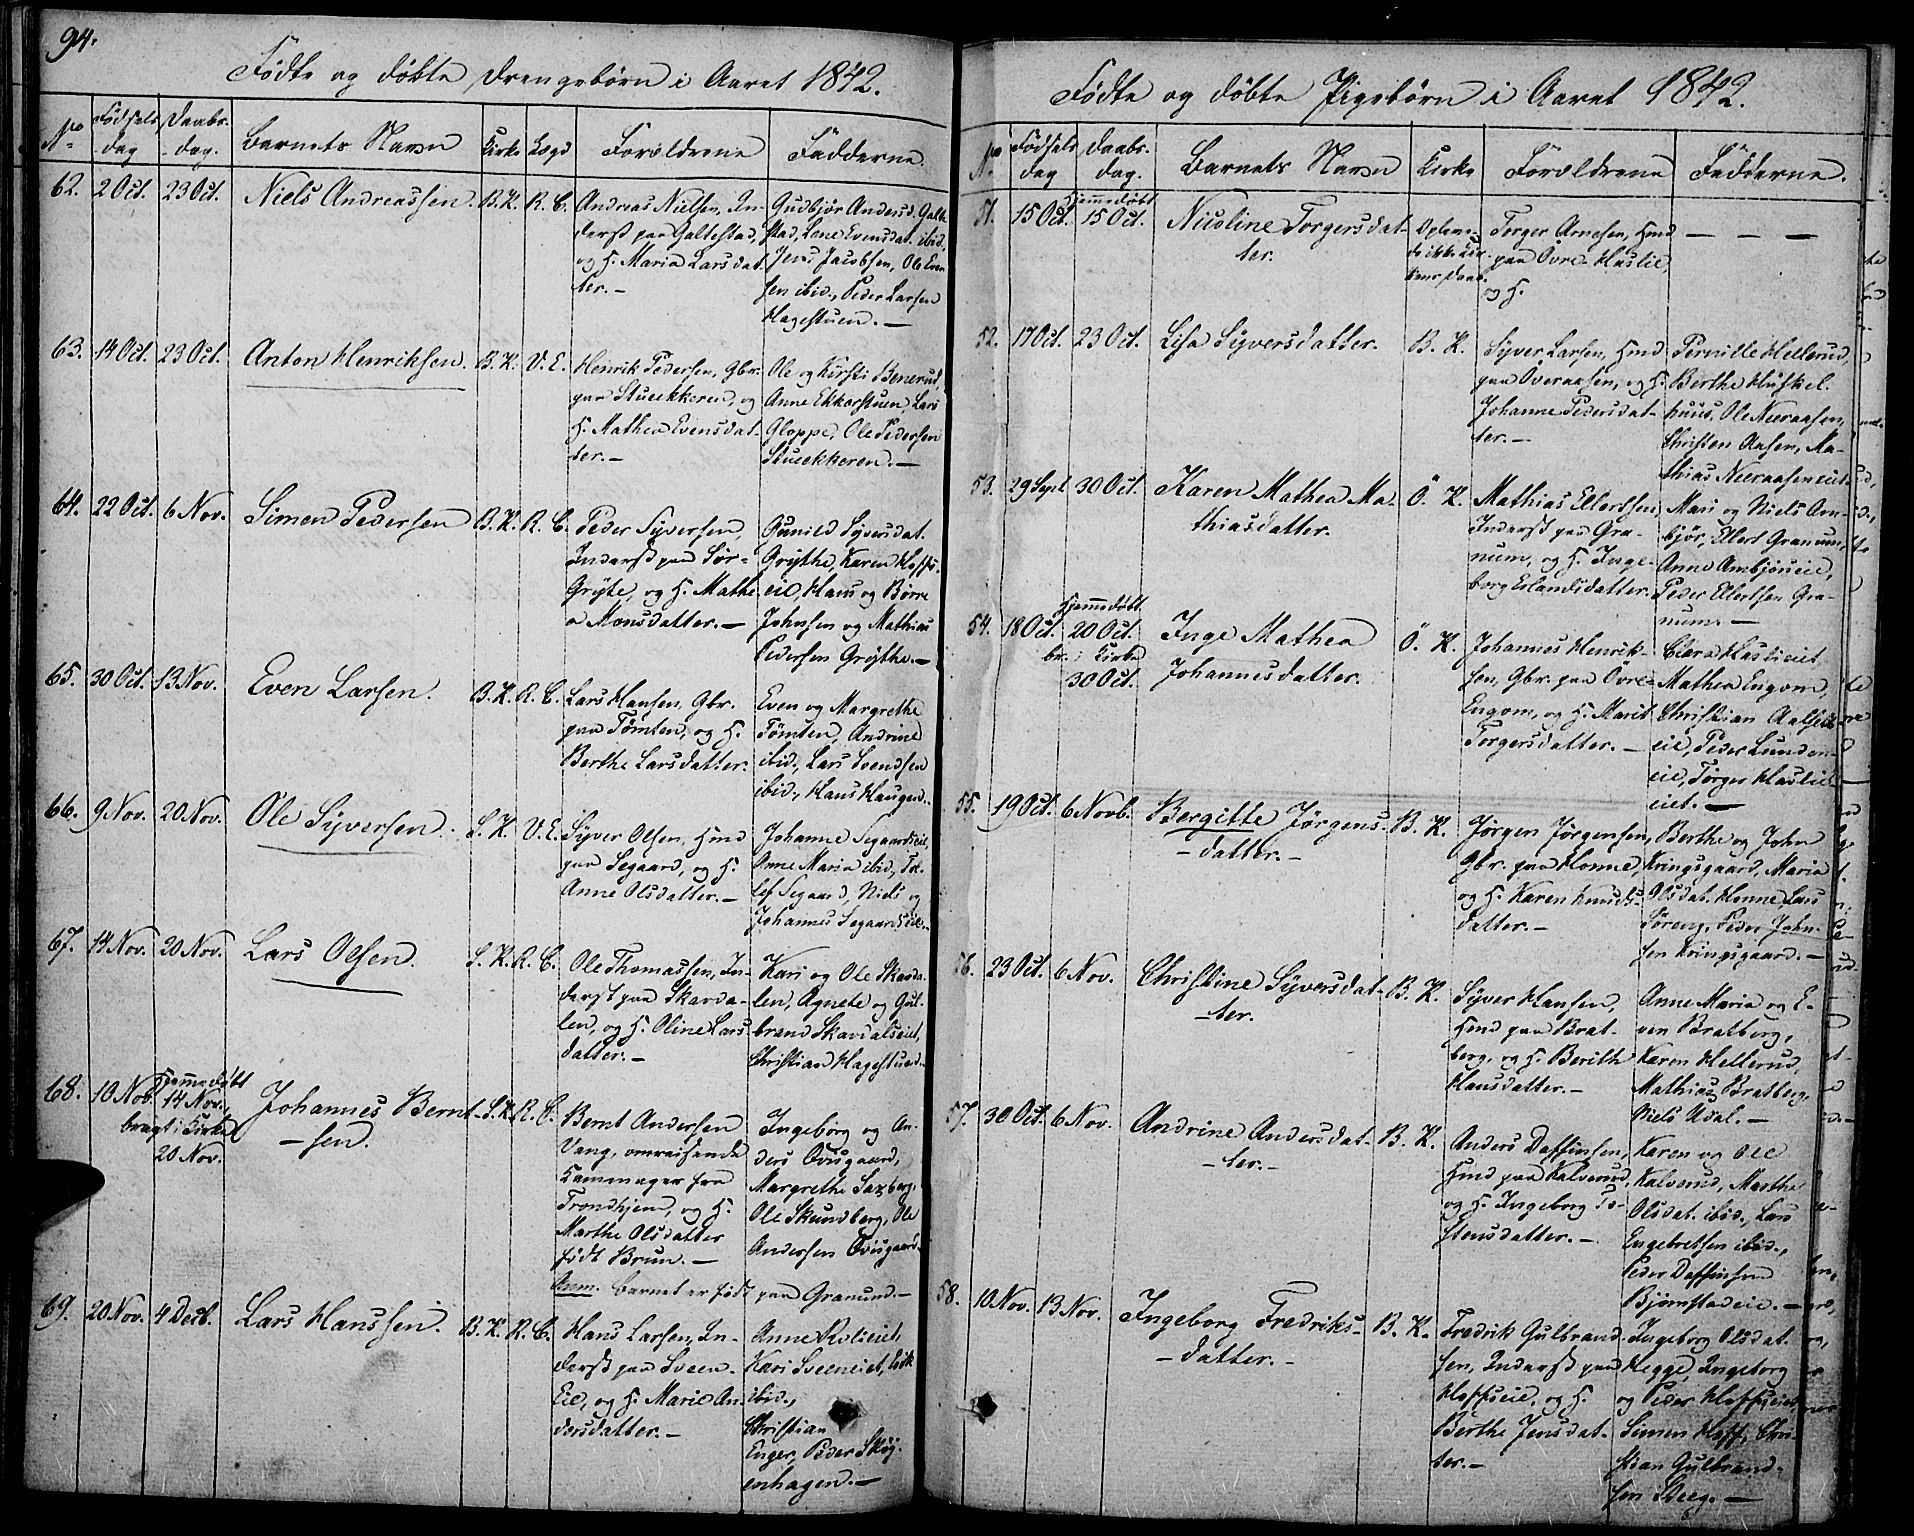 94.
Födte og döbte Drengebörn i Aaret 1842.
No Födsels dag Daabs. dag. Barnets Navn Kirke Lægd Forældrene Fadderne.
62. 2 Oct. 23 Oct. Niels Andreassen. B.K. R.C.
Andreas Nielsen, In-
derst paa Galtestad,
og H. Maria Larsdat
ter.-
Gudbjør Andersd. Galte
stad, Lene Evensdat. ibid,
Jens Jacobsen, Ole Even
sen ibid., Peder Larsen
Hagestuen.-
63. 14 Oct. 23 Oct. Anton Henriksen. B.K. V.E.
Henrik Pedersen, Gbr.
paa Stueekkeren, og
H. Mathea Evensdat-
ter.-
Ole og Kirsti Benerud,
Anne Ekkerstuen, Lars
Gloppe, Ole Pedersen
Stueekkeren.-
64. 22 Oct. 6 Nov. Simen Pedersen B.K. R.C.
Peder Syversen,
Inderst paa Sör-
Gröjte, og H. Mathe
a Monsdatter.-
Gunild Syversdat.
Gröjthe, Karen Hoffs-
eie, Hans og Börre
Johnsen og Mathias
Pedersen Gröjthe.-
65. 30 Oct. 13 Nov. Even Larsen. B.K. R.C.
Lars Hansen, Gbr.
paa Tömten, og H.
Berthe Larsdatter.
Even og Margrethe
Tömten, Andrine
ibid., Lars Svendsen
ibid., Hans Haugen.
66. 9 Nov. 20 Nov. Ole Syversen. S.K. V.E.
Syver Olsen, Hmd
paa Segaard, og H.
Anne Olsdatter.-
Johanne Segaardseie,
Anne Maria ibid., To-
lef Segaard, Niels og
Johannes Segaardseie.
67. 14 Nov. 20 Nov. Lars Olsen. S.K. R.C.
Ole Thomassen, In-
derst paa Skavda-
len, og H. Oline Lars
datter.-
Kari og Ole Skavda-
len, Agnete og Gul-
brand Skavdalseiet,
Christian Hagestuen.
68. 10 Nov. Hjemmedøbt
14 Nov.,
bragt i Kirke
20 Nov.
Johannes Bernt-
-sen. S.K. R.C.
Bernt Andersen
Vang, omreisende
Kammager fra
Trondhjem, og H.
Marthe Olsdatter
födt Brun.-
Ingeborg og An-
ders Ovsgaard,
Margrethe Saxberg,
Ole Skundberg, Ole
Andersen Ovsgaard.
Anm. Barnet er födt paa Granund.-
69. 20 Nov. 4 Decb. Lars Hanssen. B.K. R.C.
Hans Larsen, In-
derst paa Sveen
Eie, og H. Marie An-
dersdatter.-
Anne Rolieiet,
Kari Sveeneiet,
ibid.,
Christian
Enger, Peder Skøj-
enhagen.-
Födte og döbte Pigebörn i Aaret 1842.
No Födsels dag Daabs. dag. Barnets Navn Kirke Forældrene Fadderne.
51. 15 Oct. Hjemmedöbt
15 Oct. Nicoline Torgersdat-
ter.
Torger Arnesen, Hmd
paa Övre-Haslie,
og H.
- - -
52. 17 Oct. 23 Oct. Lisa Syversdatter. B.K.
Syver Larsen, Hmd
paa Overaasen, og H.
Johanne Pedersdat-
ter.-
Pernille Hellerud,
Berthe Huskel-
huus, Ole Nieraasen,
Christen Aasen, Ma-
thias Nieraaseneiet
53. 29 Sept 30 Oct. Karen Mathea Ma-
thiasdatter. Ö.K.
Mathias Ellertsen,
Inderst paa Gra-
num, og H. Inge-
borg Erlandsdatter.
Mari og Niels Am-
björ, Ellert Granum,
Anne Ambjöreie,
Peder Ellertsen Gra-
num.-
54. 18 Oct. Hjemmedöbt
20 Oct.
br. i Kirke
30 Oct.
Inge Mathea
Johannesdatter. Ö.K.
Johannes Henrik-
sen, Gbr. paa Övre-
Engom, og H. Marit
Torgersdatter.-
Clara Haslieiet
Mathea Engom,
Christian Aalset-
eie, Peder Lunden-
eie, Torger Haslie
eiet.-
55. 19 Oct. 6 Novb. Bergitte Jörgens-
-datter.- B.K.
Jörgen Jörgensen,
Gbr. paa Honne,
og H. Karen Knuds-
datter.-
Berthe og John
Kringsgaard, Maria
Olsdat. Honne, Lars
Söreng, Peder John-
sen Kringsgaard.-
56. 23 Oct. 6 Nov. Christine Syversdat-
-ter. B.K.
Syver Hansen,
Hmd paa Brat-
berg, og H. Berith
Hansdatter.-
Anne Maria og E-
ven Bratberg,
Karen Hellerud,
Mathias Bratberg,
Niels Udal.-
57. 30 Oct. 6 Nov. Andrine Andersdat-
-ter.- B.K.
Anders Daffinsen,
Hmd paa Kalverud,
og H. Ingeborg To-
stensdatter.-
Karen og Ole
Kalverud, Marthe
Olsdat. ibid., Lars
Engebretsen ibid.,
Peder Daffinsen
Bjørnstadeie.-
58. 10 Nov. 13 Nov. Ingeborg Fredriks-
-datter.- B.K.
Fredrik Gulbrand
sen, Inderst paa
Hoffseie, og H.
Berthe Jensdat-
ter.-
Ingeborg Olsdat.
Hegge, Ingeborg
og Peder Hoffseiet
Simen Hoff, Chri-
stian Gulbrand-
sen Steeg.-